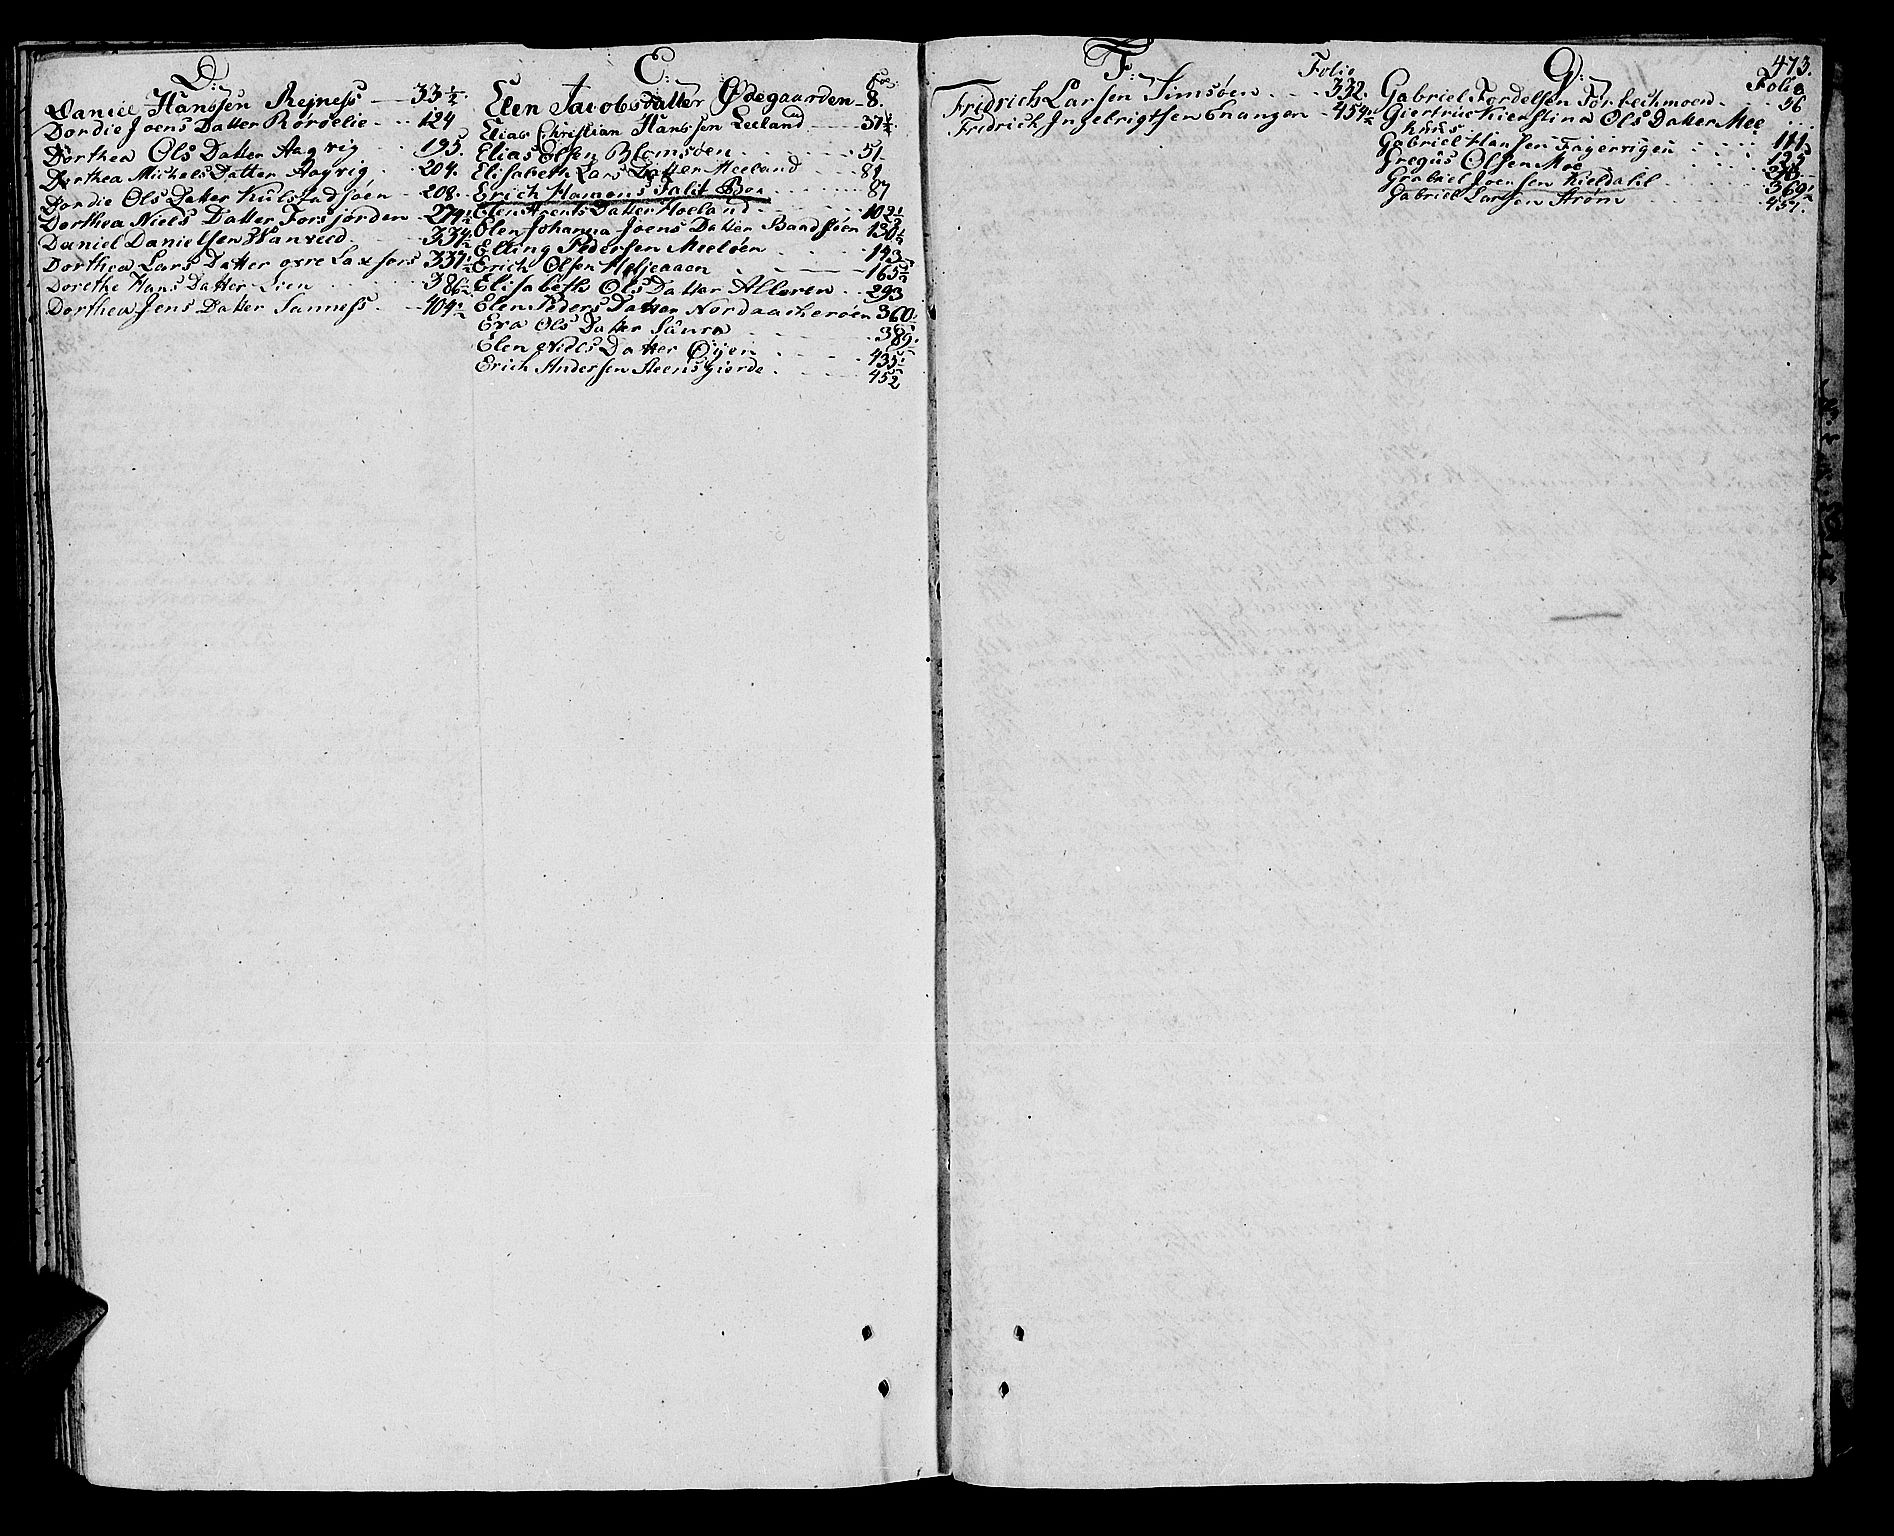 D:
Daniel Hanssen Rejness 33 1/2
Dordie Joens Datter Rørdelie 124
Dorthea Ols Datter Aagvig 195.
Dorthea Michels Datter Aagvig 204.
Dordie Ols Datter Kulstadsøen 208.
Dorthea Niels Datter Forsjorden 274 1/2
Daniel Danielsen Hanveed 334 1/2
Dorthea Lars Datter øvre Laxfors 337 1/2
Dorethe Hans Datter Lien 386 1/2
Dorthea Jens Datter Sanness 404 1/2
E: Fol:
Elen Jacobsdatter Ødegaarden 8.
Elias Christian Hanssen Leeland 37 1/2
Elias Olsen Blomsøen 51
Elisabeth Lars Datter Meeland 81
Erich Hemens Falit Boe 87
Elen Arents Datter Hoeland 102 1/2
Elen Johanna Joens Datter Bandsøen 130 1/2
Elling Pedersen Meeløen 143
Erich Olsen Heljeaaen 165 1/2
Elisabeth Ols Datter Alleren 293
Elen Peders Datter Nordaasherøen 360 1/2
Eva Ols Datter Saura 389 1/2
Elen Niels Datter Øijen 435 1/2
Erich Andersen Steensgierde 452
F: Folio
Fridrich Larsen Simsøen 332.
Fridrich Ingelrigtsen Changen 454 1/2
473.
G: Folio
Gabriel Tordelsen Forbechmoen 96
Giertrue Kierstina Ols Datter Mee
huus
Gabriel Hansen Fagervigen 111
Gregus Olsen Moe 125
Gabriel Joensen Kieldahl 369 1/2
Gabriel Larsen Strøm 457.